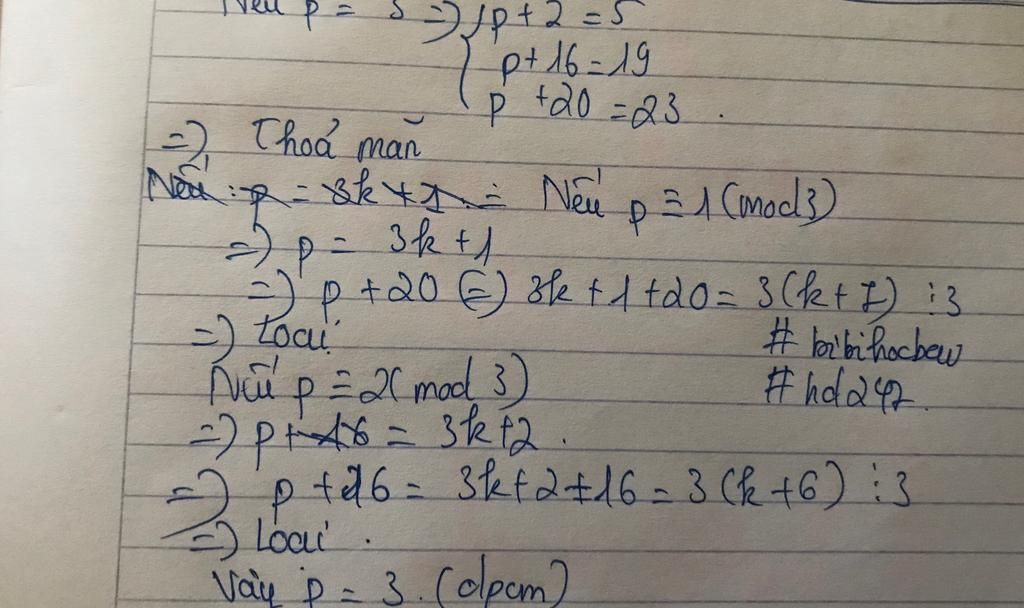 Nếu p = 3 => p + 2 = 5
p + 16 = 19
p + 20 = 23 .
=> Thoả mãn
Nếu : p = 3k + 1 = Nếu p ≡ 1 (mod 3)
=> p = 3k + 1
=> p + 20 (=) 3k + 1 + 20 = 3(k + 7) ⋮ 3
=> Loại
# bibihocbew
Nếu p ≡ 2 (mod 3)
# hd247
=> p + 16 = 3k + 2 .
=> p + 16 = 3k + 2 + 16 = 3(k + 6) ⋮ 3
=> Loại .
Vậy p = 3 . (đpcm)